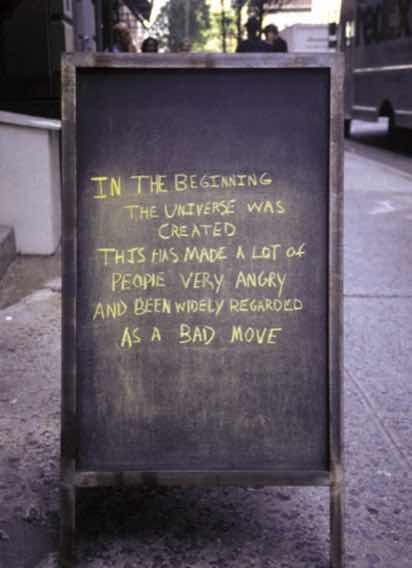 IN THE BEGINNING
THE UNIVERSE WAS
CREATED
THIS HAS MADE A LOT OF
PEOPLE VERY ANGRY
AND BEEN WIDELY REGARDED
AS A BAD MOVE